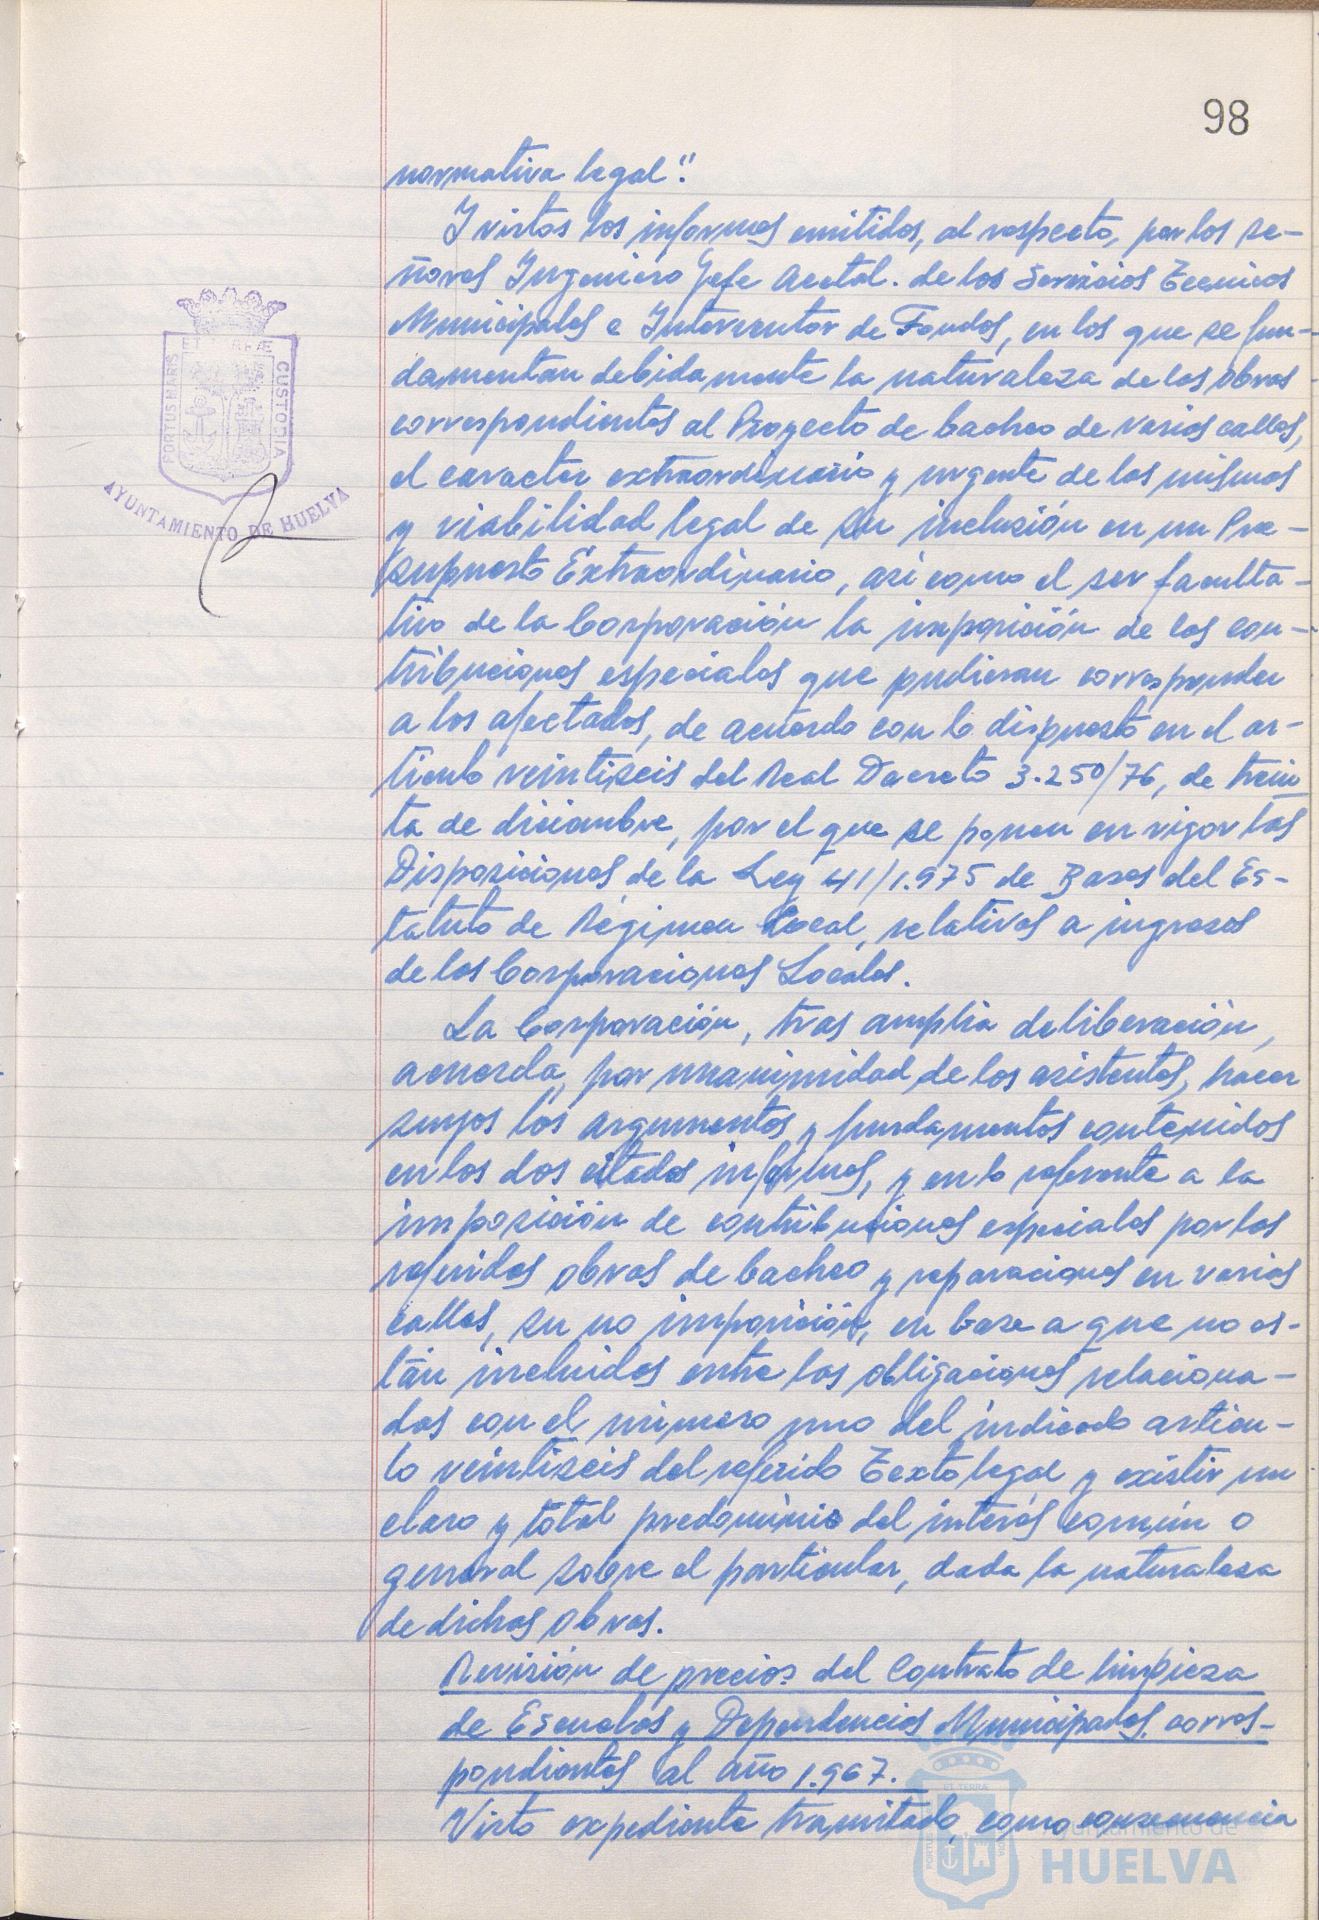 98
normativa legal".
Y vistos los informes emitidos, al respecto, por los se-
ñores Ingeniero Jefe Acctal. de los Servicios Tecnicos
Municipales e Interventor de Fondos, en los que se fun-
damentan debidamente la naturaleza de las obras
correspondientes al Proyecto de bacheo de varias calles,
el caracter extraordinario y urgente de las mismas
y viabilidad legal de su inclusión en un Pre-
supuesto Extraordinario, asi como el ser faculta-
tivo de la Corporación la imposición de las con-
tribuciones especiales que pudieran corresponder
a los afectados, de acuerdo con lo dispuesto en el ar-
tículo veintiseis del Real Decreto 3.250/76, de trein
ta de diciembre, por el que se ponen en vigor las
Disposiciones de la Ley 41/1.975 de Bases del Es-
tatuto de Régimen Local, relativas a ingresos
de las Corporaciones Locales.
La Corporación, tras amplia deliberación,
acuerda, por unanimidad de los asistentes, hacer
suyos los argumentos y fundamentos contenidos
en los dos citados informes, y en lo referente a la
imposición de contribuciones especiales por las
referidas obras de bacheo y reparaciones en varias
calles, su no imposición, en base a que no es-
tán incluidas entre las obligaciones relaciona-
das con el número uno del indicado artícu-
lo veintiseis del referido Texto legal y existir un
claro y total predominio del interés común o
general sobre el particular, dada la naturaleza
de dichas obras.
Revisión de precios del Contrato de limpieza
de Escuelas y Dependencias Municipales, corres-
pondientes al año 1.967.
Visto expediente tramitado, como consecuencia
PORTUS MARIS ET TERRÆ CUSTODIA
AYUNTAMIENTO DE HUELVA
Ayuntamiento de
HUELVA